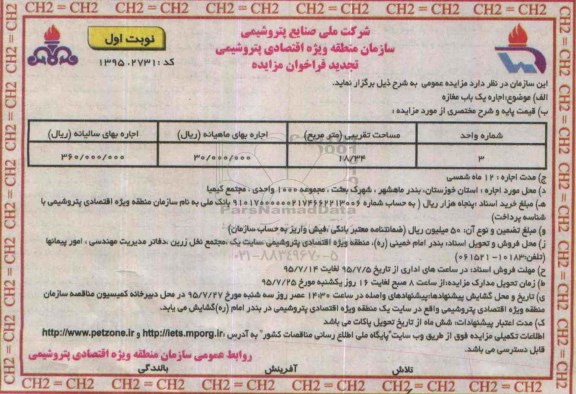 CH2 = CH2 CH2 = CH2 CH2 = CH2 CH2 = CH2 CH2 = CH2 CH2 = CH2
شرکت ملی صنایع پتروشیمی
سازمان منطقه ویژه اقتصادی پتروشیمی
تجدید فراخوان مزایده
نوبت اول
کد : ۱۳۹۵.۲۷۳۱
این سازمان در نظر دارد مزایده عمومی به شرح ذیل برگزار نماید.
الف) موضوع:اجاره یک باب مغازه
ب) قیمت پایه و شرح مختصری از مورد مزایده :
شماره واحد مساحت تقریبی (متر مربع) اجاره بهای ماهیانه (ریال) اجاره بهای سالیانه (ریال)
۳ ۱۸/۳۴ ۳۰/۰۰۰/۰۰۰ ۳۶۰/۰۰۰/۰۰۰
ج) مدت اجاره : ۱۲ ماه شمسی
د) محل مورد اجاره : استان خوزستان، بندر ماهشهر ، شهرک بعثت ، مجموعه ۱۰۰۰ واحدی ، مجتمع کیمیا
ه) مبلغ خرید اسناد :پنجاه هزار ریال ( به حساب شماره ۹۱۰۱۷۰۰۰۰۰۰۲۱۷۴۶۶۲۲۱۳۰۰۶ بانک ملی به نام سازمان منطقه ویژه اقتصادی پتروشیمی با
شناسه پرداخت)
و) مبلغ تضمین و نوع آن: ۵۰ میلیون ریال (ضمانتنامه معتبر بانکی /فیش واریز به حساب سازمان)
ز) محل فروش و تحویل اسناد: بندر امام خمینی (ره)، منطقه ویژه اقتصادی پتروشیمی ،سایت یک ،مجتمع نخل زرین ،دفاتر مدیریت مهندسی ، امور پیمانها
(تلفن:۱۰۱۸۳-۰۶۱۵۲۱)
ح) مهلت فروش اسناد: در ساعت های اداری از تاریخ ۹۵/۷/۵ لغایت ۹۵/۷/۱۴
ط) زمان تحویل مدارک مزایده:از ساعت ۸ صبح لغایت ۱۶ روز یکشنبه مورخ ۹۵/۷/۲۵
ی) تاریخ و محل گشایش پیشنهادها:پیشنهادهای واصله در ساعت ۱۴:۳۰ عصر روز سه شنبه مورخ ۹۵/۷/۲۷ در محل دبیرخانه کمیسیون مناقصه سازمان
منطقه ویژه اقتصادی پتروشیمی واقع در سایت یک منطقه ویژه اقتصادی پتروشیمی در بندر امام (ره)گشایش می یابد.
ک) مدت اعتبار پیشنهادات: شش ماه از تاریخ تحویل پاکات می باشد
اطلاعات تکمیلی مزایده فوق از طریق وب سایت"پایگاه ملی اطلاع رسانی مناقصات کشور" به آدرس http://iets.mporg.ir، و http://www.petzone.ir
قابل دسترسی می باشد.
روابط عمومی سازمان منطقه ویژه اقتصادی پتروشیمی
تلاش آفرینش بالندگی
ParsNamadData
۰۲۱-۸۸۳۴۹۶۷۰-۵
CH2 = CH2 CH2 = CH2 CH2 = CH2 CH2 = CH2 CH2 = CH2 CH2 = CH2